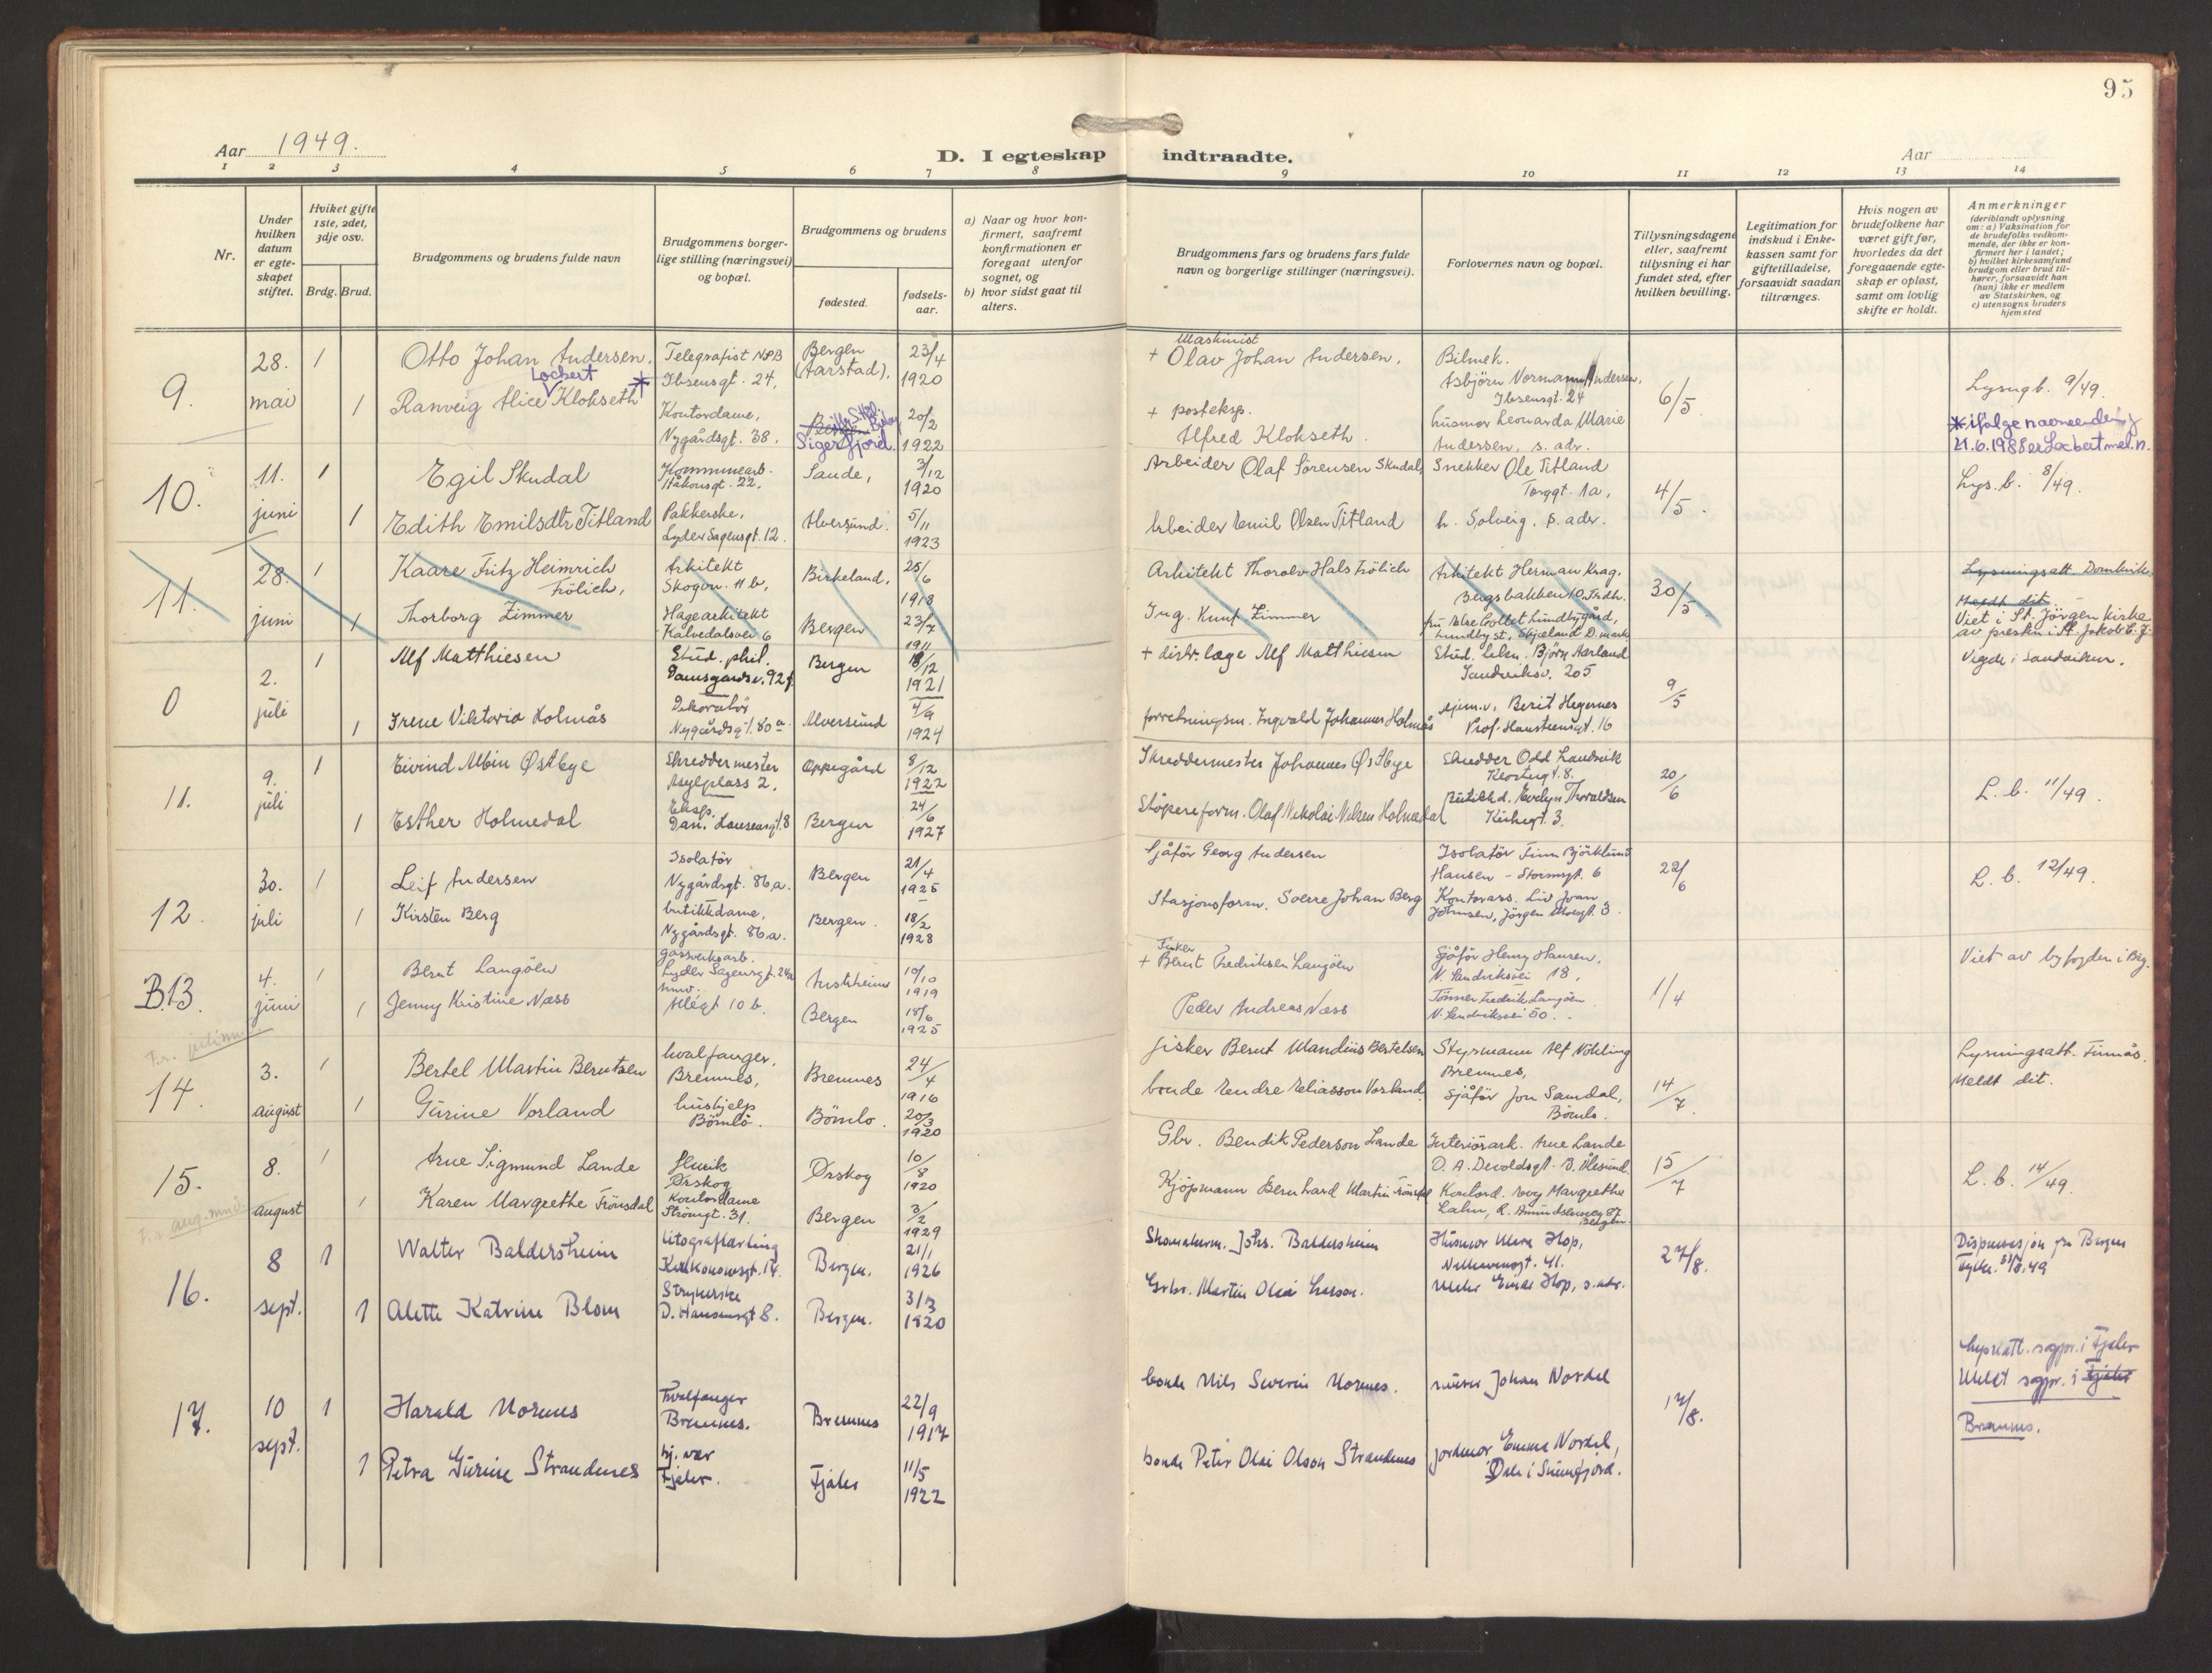 95
Aar 1949.
D. I egteskap indtraadte.
Aar
1 2 3 4 5 6 7 8 9 10 11 12 13 14
Nr.
Under hvilken datum er egteskapet stiftet.
Hviket gifte 1ste, 2det, 3dje osv.
Brdg. Brud.
Brudgommens og brudens fulde navn
Brudgommens borgerlige stilling (næringsvei) og bopæl.
Brudgommens og brudens
fødested.
fødselsaar.
a) Naar og hvor konfirmert, saafremt konfirmationen er foregaat utenfor sognet, og
b) hvor sidst gaat til alters.
Brudgommens fars og brudens fars fulde navn og borgerlige stillinger (næringsvei).
Forlovernes navn og bopæl.
Tillysningsdagene eller, saafremt tillysning ei har fundet sted, efter hvilken bevilling.
Legitimation for indskud i Enkekassen samt for giftetilladelse, forsaavidt saadan tiltrænges.
Hvis nogen av brudefolkene har været gift før, hvorledes da det foregaaende egteskap er opløst, samt om lovlig skifte er holdt.
Anmerkninger
(deriblandt oplysning om: a) Vaksination for de brudefolks vedkommende, der ikke er konfirmert her i landet;
b) hvilket kirkesamfund brudgom eller brud tilhører, forsaavidt han (hun) ikke er medlem av Statskirken, og
c) utensogns bruders hjemsted
9. 28. mai 1 Otto Johan Andersen. Telegrafist NSB Ibsensgt. 24. Bergen (Aarstad). 23/4 1920
Maskinist + Olav Johan Andersen. Bilmek. Asbjörn Normann Andersen, Ibsensgt. 24 6/5 Lysngb. 9/49.
1 Ranveig Alice Lockert * Klokseth Kontordame, Nygårdsgt. 38. Sigerfjord. 20/2 1922
+ posteksp. Alfred Klokseth. husmor Leonarda Marie Andersen, s. adr.
* ifølge navneendring 21.6.1988 er Lockert mel.n.
10. 11. juni 1 Egil Skudal Kommunearb. Håkonsgt. 22. Sande, 3/12 1920
Arbeider Olaf Sörensen Skudal, Snekker Ole Titland Torggt. 1a, 4/5 Lys. b. 8/49.
1 Edith Emilsdtr Titland Pakkerske, Lyder Sagensgt. 12. Alversund. 5/11 1923
Arbeider Emil Olsen Titland h. Solveig, s. adr.
11. 28. juni 1 Kaare Fritz Heimrich Frölich, Arkitekt Skogvn. 11 b, Birkeland, 25/6 1918
Arkitekt Thorolv Hals Frölich Arkitekt Herman Krag, Bergsbakken 10. Trdh. 30/5
Lysningsatt. Domkirk. Meldt dit
1 Thorborg Zimmer Hagearkitekt Kalvedalsvei 6 Bergen 23/7 1911
Ing. Knut Zimmer fru Else Collet Lundbygård, Lundby st, Sjæland D.mark
Viet i St. Jörgen kirke av presten i St. Jakob
0 2. juli 1 Alf Matthiesen Stud. phil. Damsgårdsv. 92 Bergen 18/12 1921
+ distr. læge Alf Matthiesen Stud. Björn Aarland Sandviksv. 205 9/5 Vigde i Sandviken.
1 Irene Viktoria Holmås Dekoratör Nygårdsgt. 80 a. Alversund 4/9 1924
forretningsm. Ingvald Johannes Holmås Berit Hegernes Prof. Hansteensgt. 16
11. 9. juli 1 Eivind Albin Østbye Skreddermester Asylplass 2. Oppegård 8/12 1922
Skreddermester Johannes Østbye Skredder Odd Landsvik Klostergt. 8. 20/6 L. b. 11/49.
1 Esther Holmedal Eksp. Dan. Hansensgt. 8 Bergen 24/6 1927
Stöpereform. Olaf Nikolai Nilsen Holmedal Butikkd. Evelyn Thoraldsen Kirkegt. 3.
12. 30. juli 1 Leif Andersen Isolatör Nygårdsgt. 86 a. Bergen 21/4 1925
Sjåför Georg Andersen Isolatör Finn Björklund Hansen - Stormsgt. 6 22/6 L. b. 12/49.
1 Kirsten Berg butikkdame, Nygårdsgt. 86 a. Bergen. 18/2 1928
Stasjonsform. Sverre Johan Berg Kontorass. Liv Joan Johnsen, Jörgen Moesgt. 3
B.13. 4. juni 1 Bernt Langöen gassverksarb. Lyder Sagensgt. 24a Austrheim 10/10 1919
Fisker + Bernt Fredriksen Langöen Sjåför Henry Hansen, N. Landviksvei 18, 1/4 Viet av byfogden i Brg.
1 Jenny Kristine Næss Allégt 10 b. Bergen 18/6 1925
Peder Andreas Næss Tömmer Fredrik Langöen N. Landviksvei 50.
F.r. juli mnd
14. 3. august 1 Bertel Martin Berntsen hvalfanger, Bremnes, Bremnes 24/4 1916
fisker Bernt Mandius Bertelsen Styrmann Alf Nökling Bremnes, 14/7. Lysningsatt. Finnås. Meldt dit.
1 Gurine Vorland hushjelp Bömlo. Bömlo. 20/3 1920
bonde Endre Eliasson Vorland sjåför Jon Samdal, Bömlo.
15. 8. august 1 Arne Sigmund Lande Ørskog Ørskog 10/8 1920
Gbr. Bendik Pederson Lande Interiörark. Arne Lande O. A. Devoldsgt. Ålesund. 15/7 L. b. 14/49.
1 Karen Margrethe Frönsdal Kontordame Strömgt. 31. Bergen 3/2 1929
Kjöpmann Bernhard Martin Frönsdal Kontord. Margrethe Lahn, R. Amundsensvei 87 Bergen
F.r. aug. mnd
16. 8 sept. 1 Walter Baldersheim Litograflærling Bergen. 21/1 1926
Skomakerm. Johs. Baldersheim Husmor Hop, 41. 27/8. Dispensasjon fra Bergen Fylke. 31/8.49
1 Alette Katrine Blom Strykerske D. Hansensgt 8. Bergen. 31/3 1920
Grbr. Martin Olai Larson. Einar Hop, s. adr.
17. 10 sept. 1 Harald Mornes Hvalfanger Bremnes. Bremnes 22/9 1917
bonde Nils Severin Mornes. murer Johan Nordal 17/8. Lysn.att. sogpr. i Fjaler Meldt sogpr. i Fjaler Bremnes.
1 Petra Gurine Strandenes hj. vær Fjaler. Fjaler 11/5 1922
bonde Peter Olai Olson Strandenes jordmor Emma Nordal, Dale i Sunnfjord.